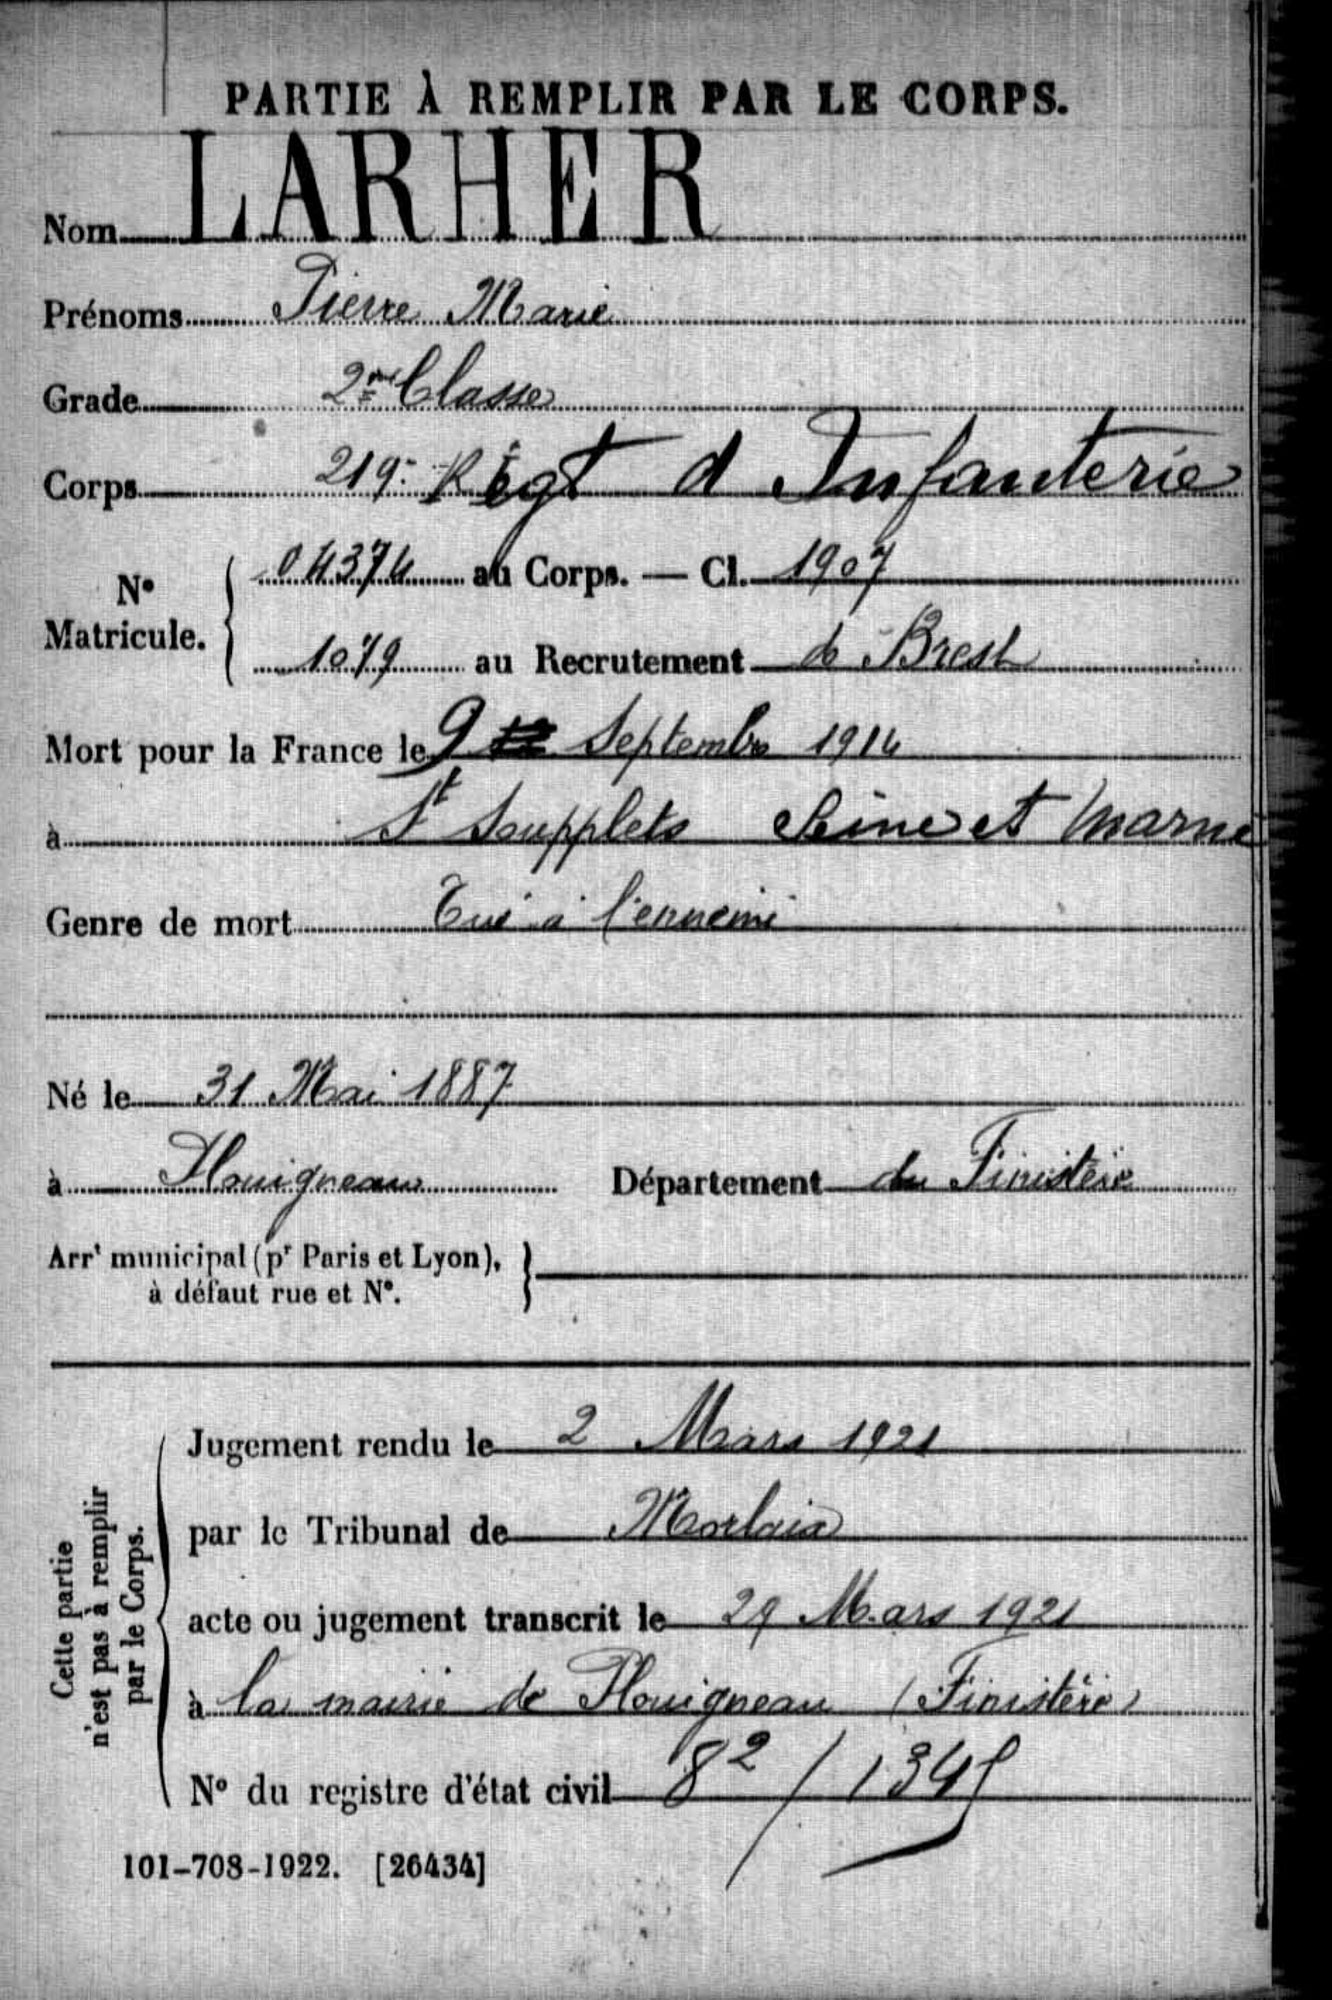 PARTIE À REMPLIR PAR LE CORPS.
Nom LARHER
Prénoms Pierre Marie
Grade 2me Classe
Corps 219e Régt d Infanterie
No Matricule. 04374 au Corps. — Cl. 1907
1079 au Recrutement de Brest
Mort pour la France le 9 Septembre 1914
à St Soupplets Seine et Marne
Genre de mort Tué à l'ennemi
Né le 31 Mai 1887
à Plouigneau Département du Finistère
Arrt municipal (pr Paris et Lyon),
à défaut rue et No.
Cette partie
n'est pas à remplir
par le Corps.
Jugement rendu le 2 Mars 1921
par le Tribunal de Morlaix
acte ou jugement transcrit le 29 Mars 1921
à la mairie de Plouigneau (Finistère)
No du registre d'état civil 82 /
101-708-1922. [26434]